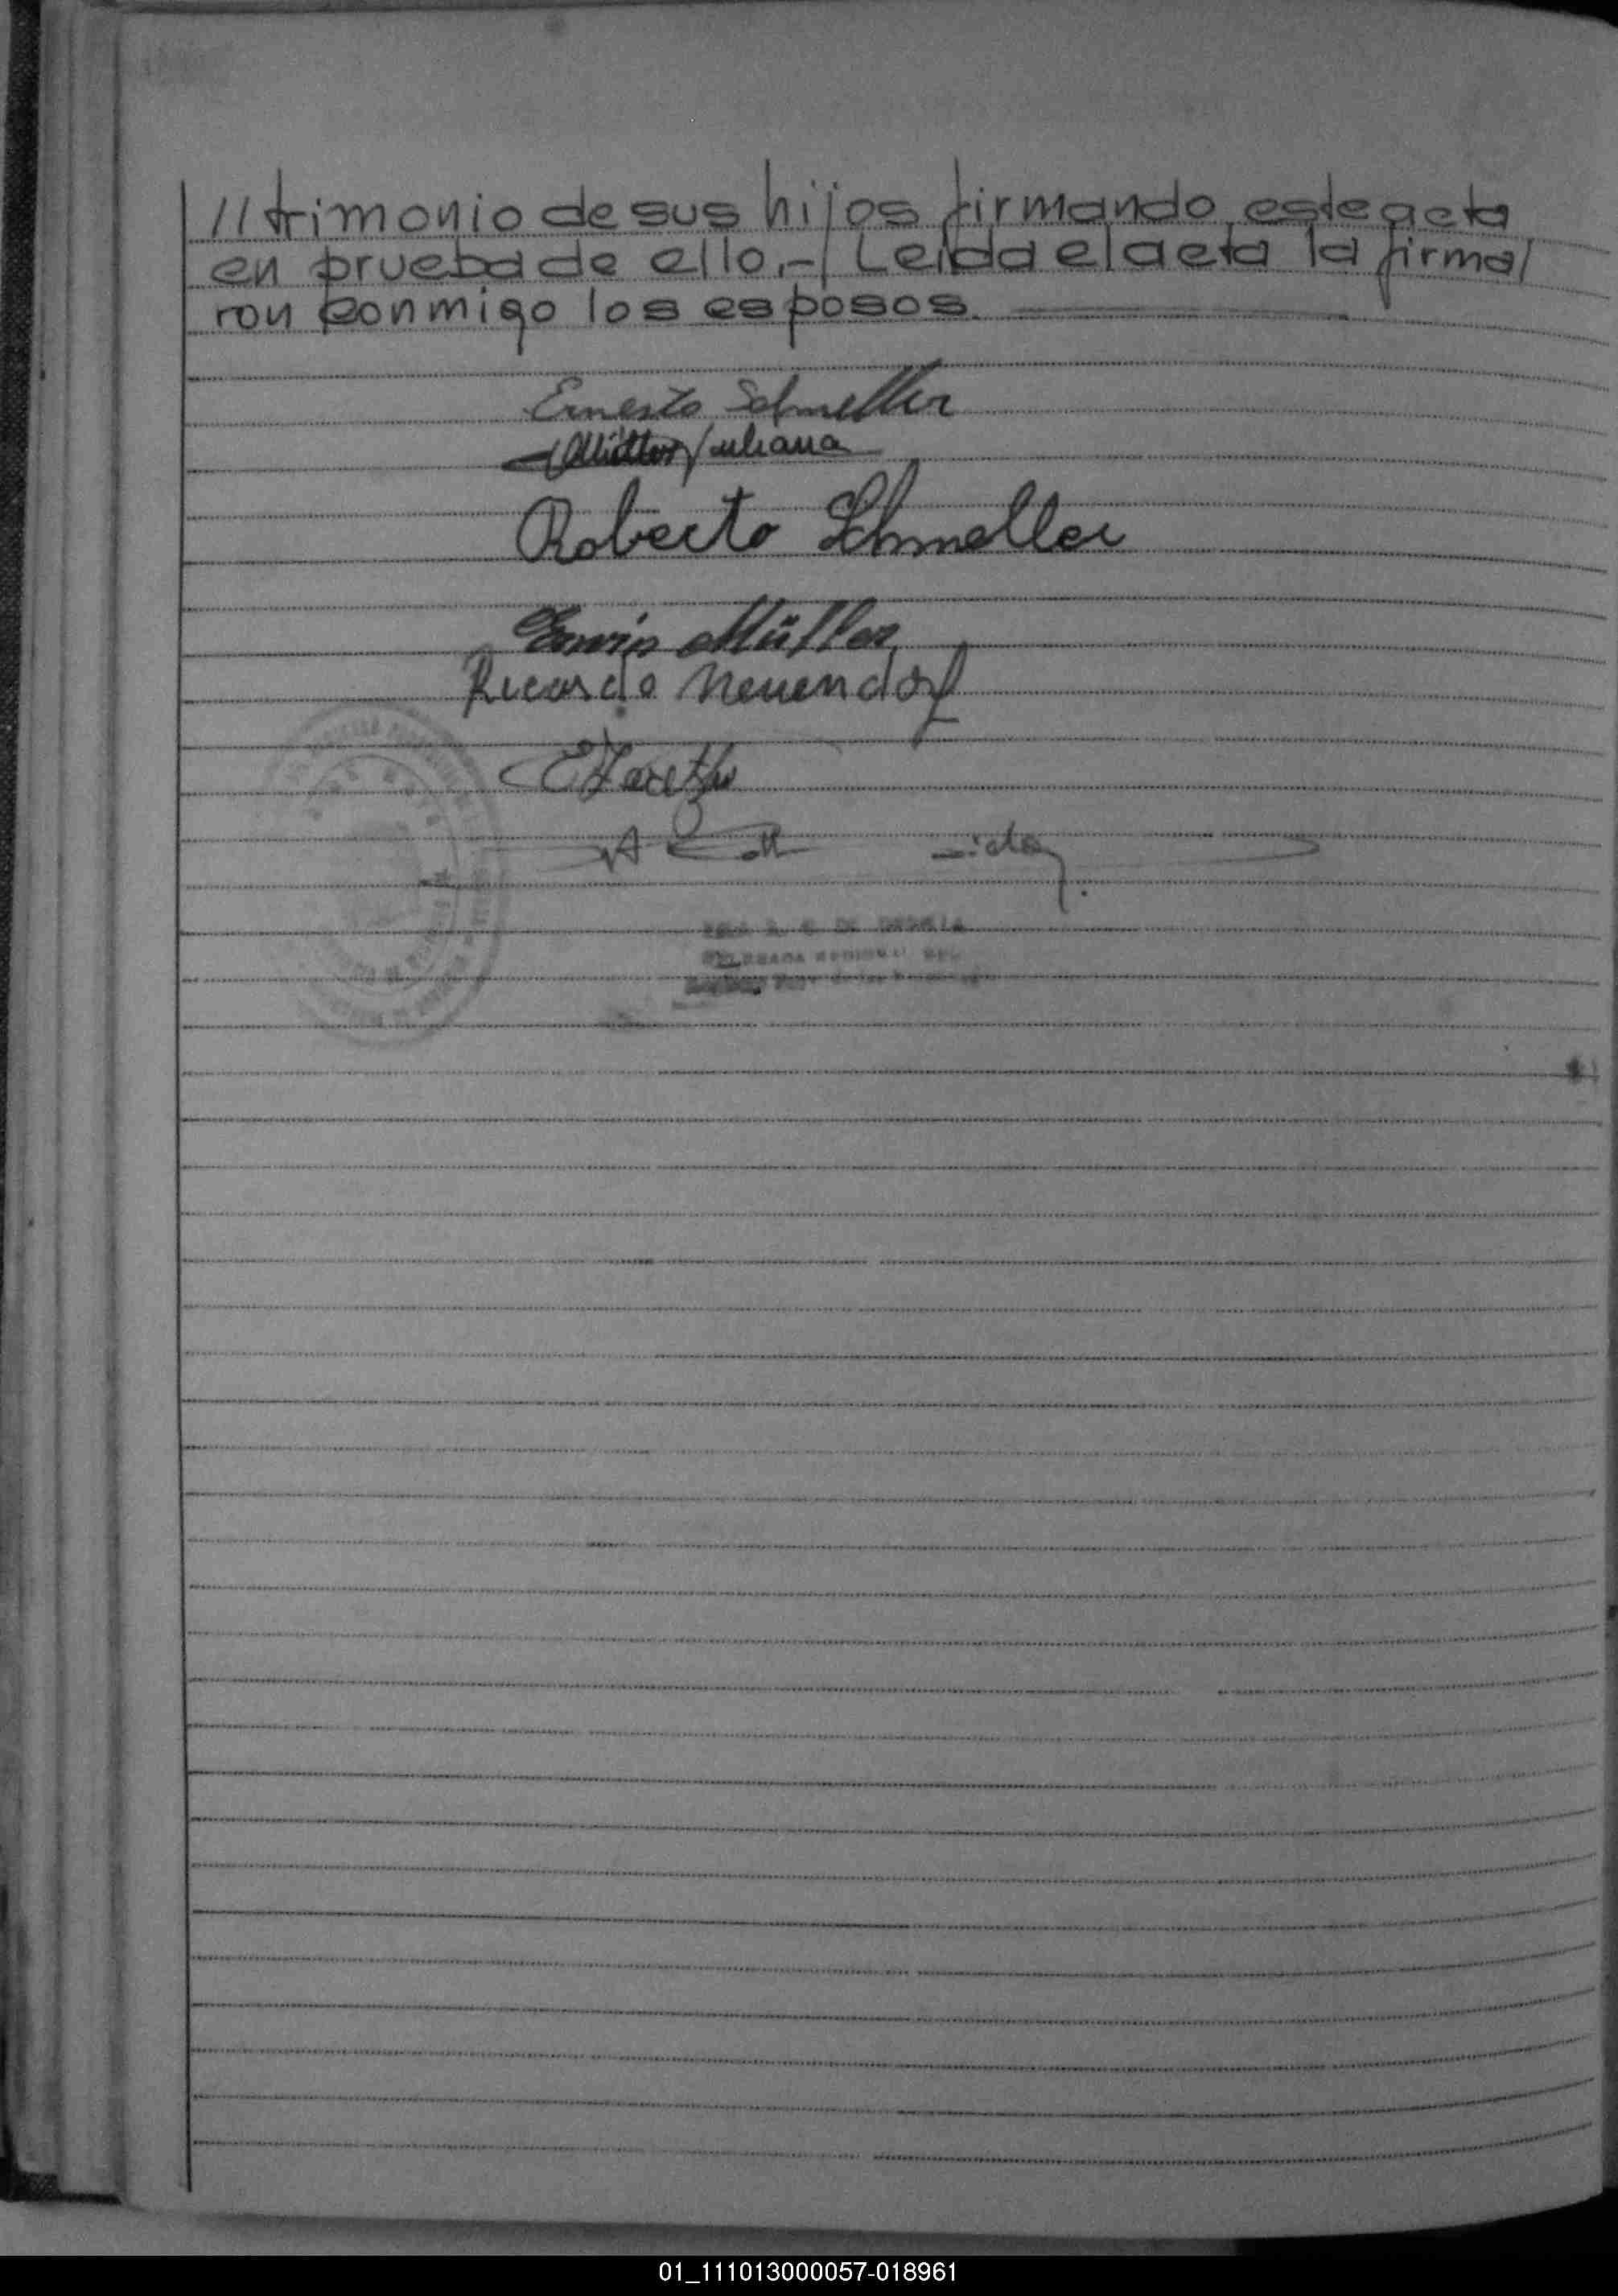 //trimonio de sus hijos firmando este acta
en prueba de ello.- Leida el acta la firma/
ron conmigo los esposos.
Ernesto Schmeller
Müller Juliana
Roberto Schmeller
Erwin Müller
Ricardo Neuendorf
01_111013000057-018961